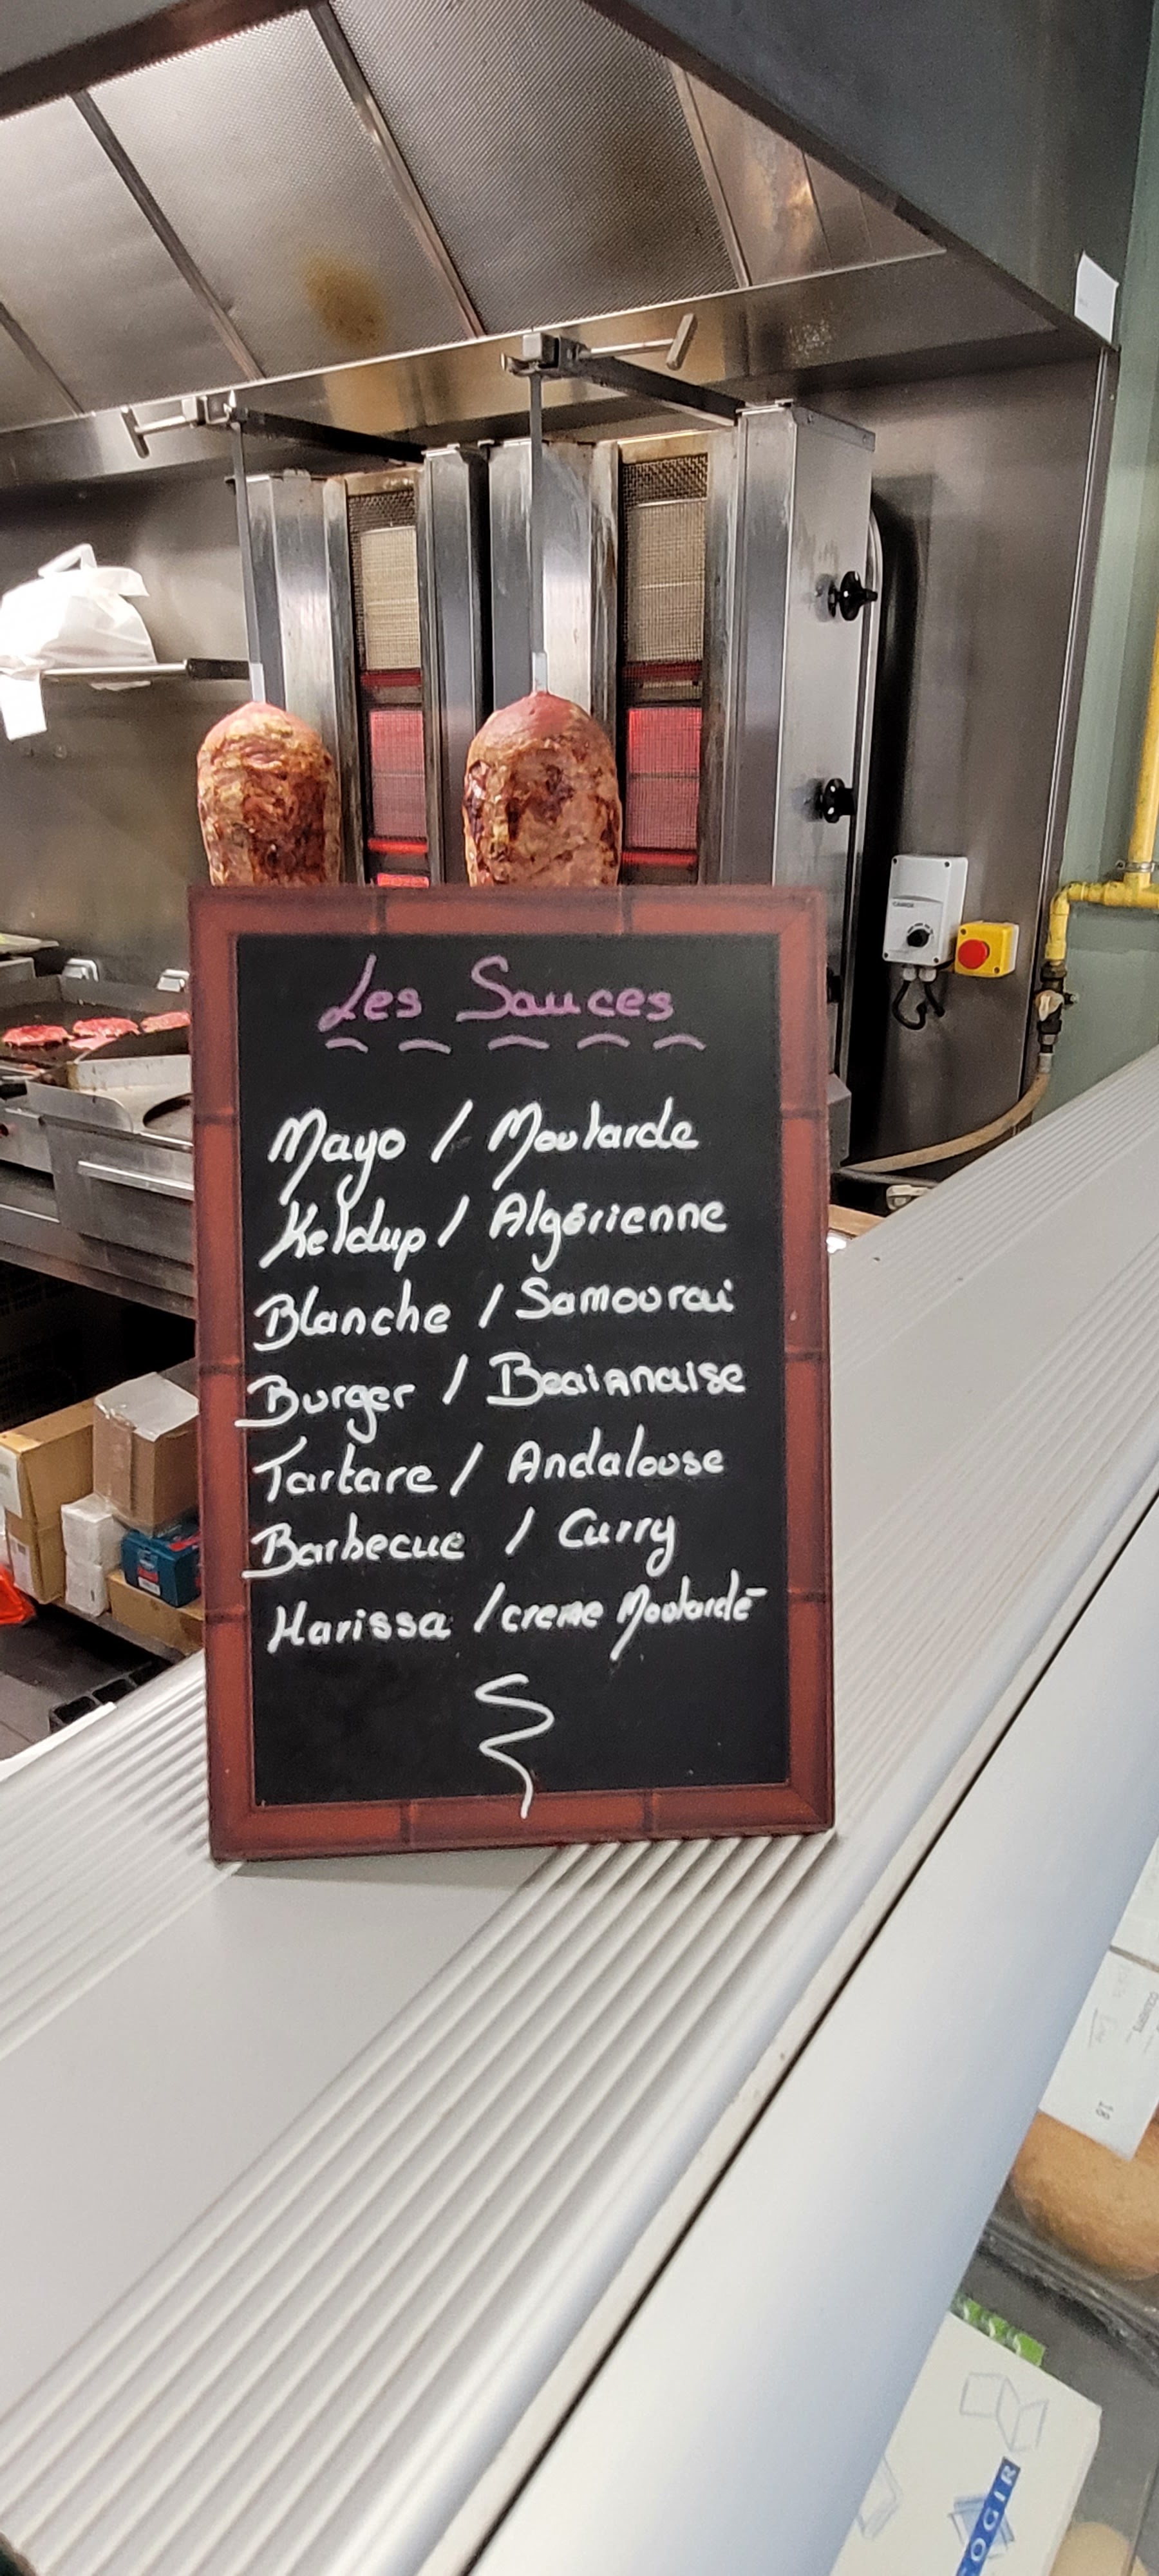 Les Sauces
Mayo / Moutarde
Ketchup / Algérienne
Blanche / Samourai
Burger / Bearnaise
Tartare / Andalouse
Barbecue / Curry
Harissa / creme Moutarde